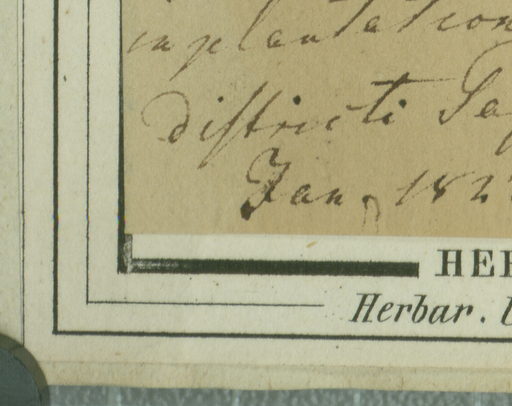 in plantation
districti Sa
Jan. 182
HER
Herbar.